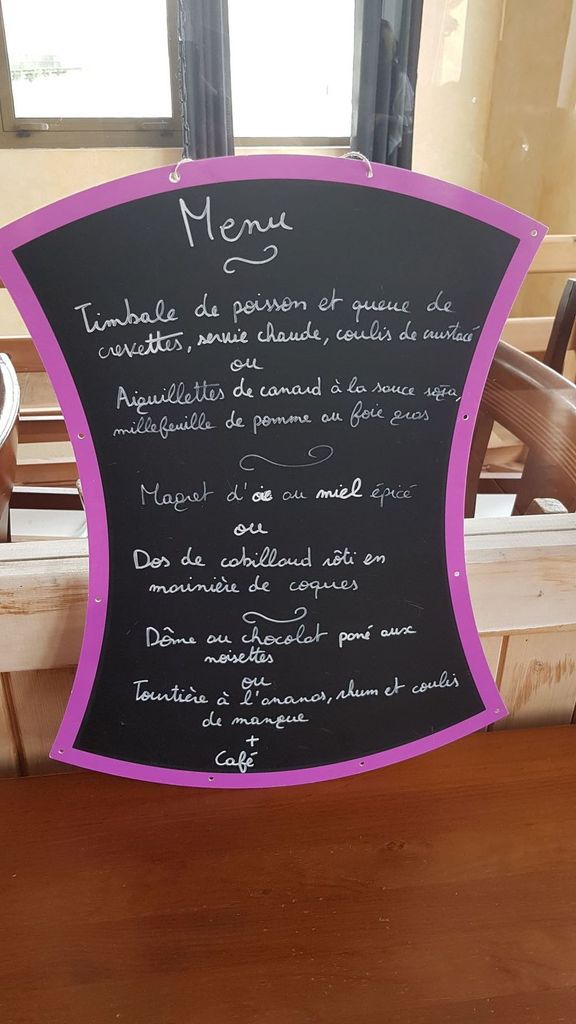 Menu
Timbale de poisson et queue de
crevettes, servie chaude, coulis de crustacé
ou
Aiguillettes de canard à la sauce soja,
millefeuille de pomme au foie gras
Magret d'oie au miel épicé
ou
Dos de cabillaud rôti en
marinière de coques
Dôme au chocolat pané aux
noisettes
ou
Tourtière à l'ananas, rhum et coulis
de mangue
+
Café